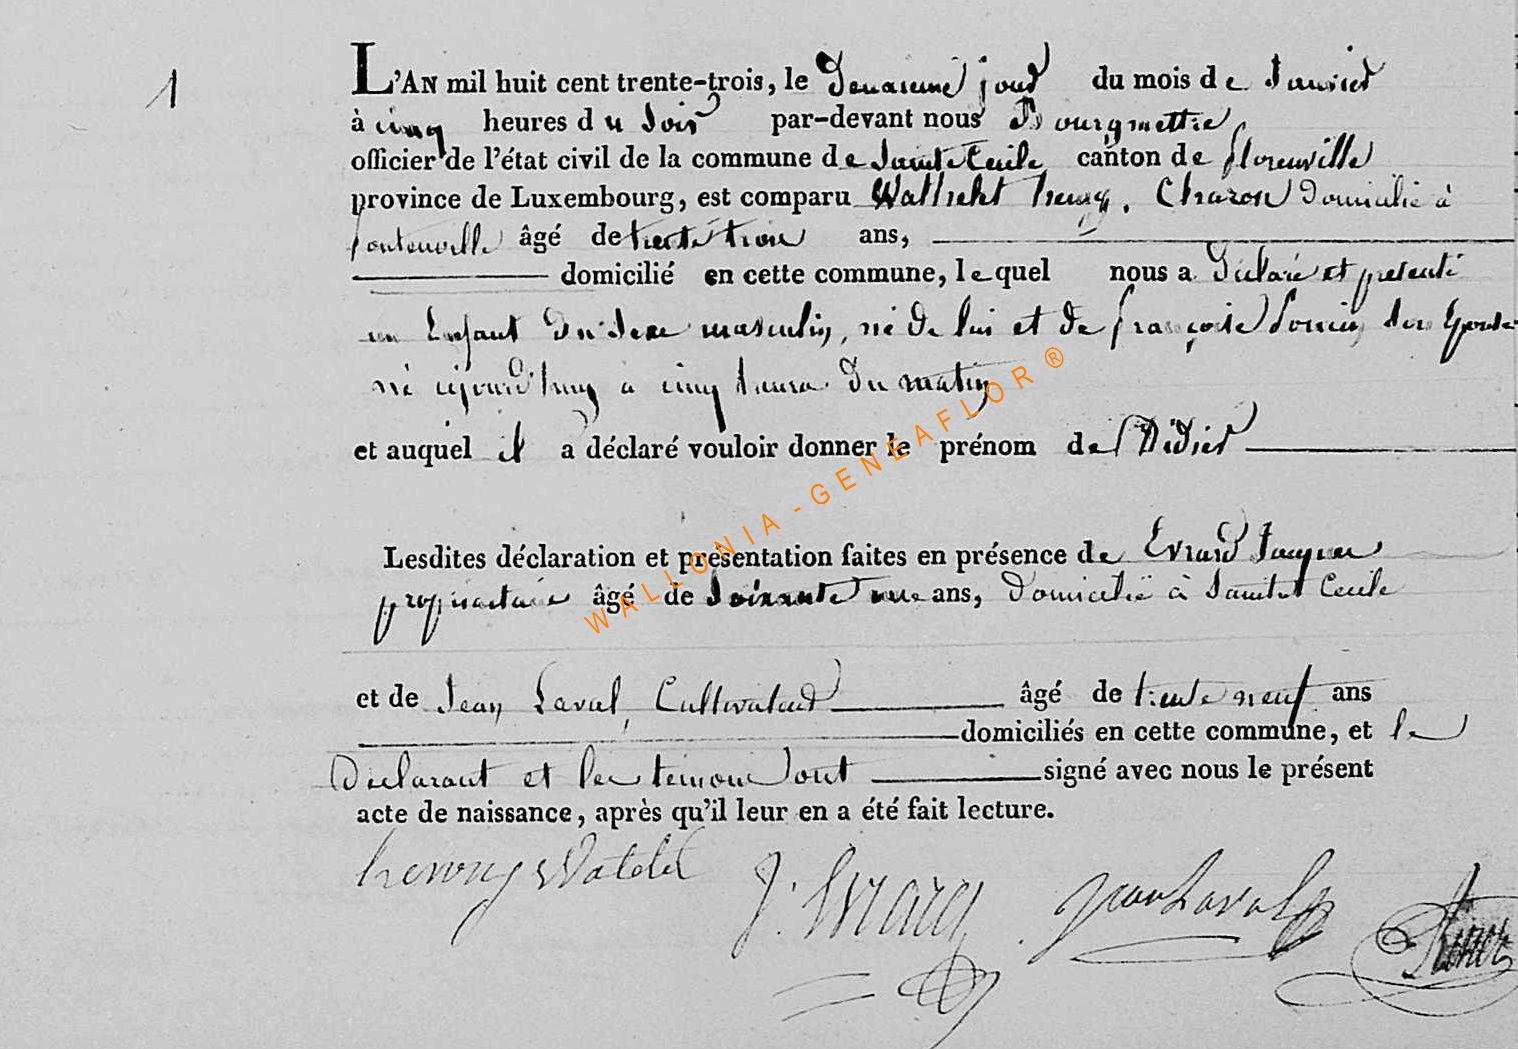 1
L'AN mil huit cent trente-trois, le Deuxieme jour du mois de Janvier
à cinq heures du soir par-devant nous Bourgmettre
officier de l'état civil de la commune de Sainte Cecile canton de florenville
province de Luxembourg, est comparu Henry, Charon Domicilié à
fontenoille âgé de trente trois ans,
domicilié en cette commune, lequel nous a Déclaré et presenté
un Enfant du sexe masculin, né de lui et de françoise son Epouse
né à cinq heures du matin
et auquel il a déclaré vouloir donner le prénom de Didier
Lesdites déclaration et présentation faites en présence de Evrard Jacques
propriétaire âgé de soixante ans, domicilié à Sainte Cecile
et de Jean Laval, Cultivateur âgé de trente neuf ans
domiciliés en cette commune, et le
Déclarant et les temoins ont signé avec nous le présent
acte de naissance, après qu'il leur en a été fait lecture.
henry Watelet J. Evrard Jean Laval
WALLONIA - GENEAFLOR ®